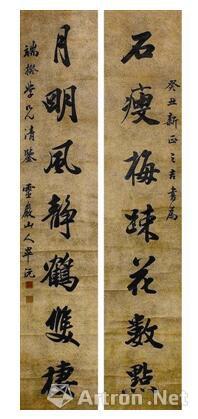 癸丑新正之吉书为
石瘦梅疎花數點
端揆学兄清鉴
月明風靜鶴雙棲
靈巖山人畢沅
Artron.Net